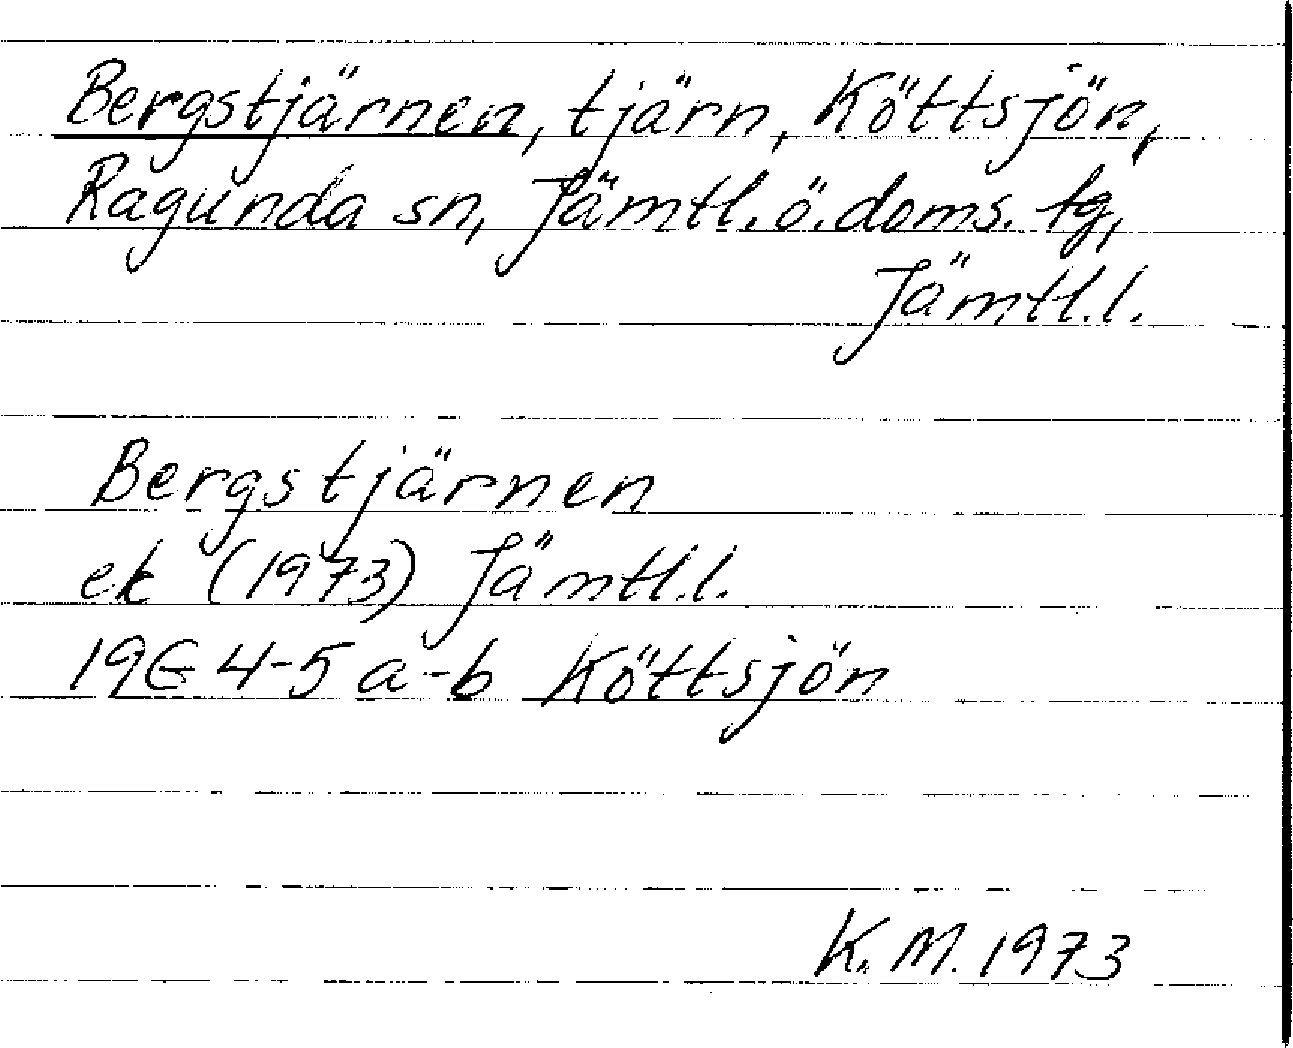 Bergstjärnen, tjärn, Köttsjön,
Ragunda sn, Jämtl. ö. doms. tg,
Jämtl. l.
Bergstjärnen
ek (1973) Jämtl. l.
19E 4-5 a-b Köttsjön
K. M. 1973